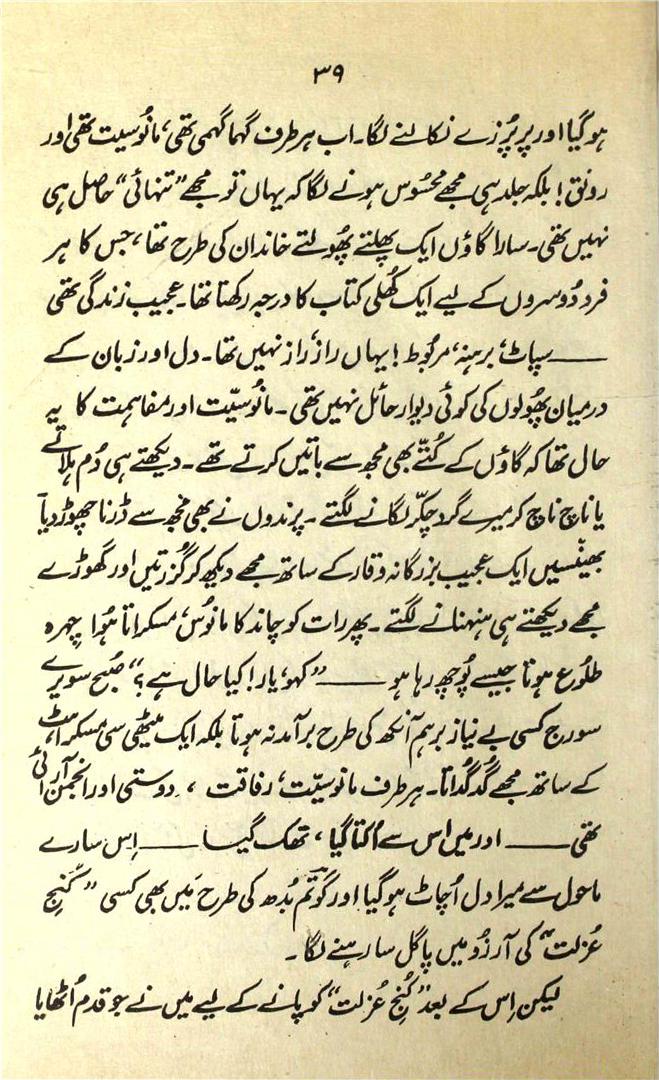 ۳۹
ہوگیا اور پر پُرزے نکالنے لگا۔ اب ہر طرف گہما گہمی تھی، مانُوسیت تھی اور
رونق! بلکہ جلد ہی مجھے محسُوس ہونے لگا کہ یہاں تو مجھے ”تنہائی“ حاصل ہی
نہیں تھی۔ سارا گاؤں ایک پھلتے پھُولتے خاندان کی طرح تھا، جس کا ہر
فرد دُوسروں کے لیے ایک کھُلی کتاب کا درجہ رکھتا تھا۔ عجیب زندگی تھی
ــــــ سپاٹ، برہنہ، مربُوط! یہاں راز، راز نہیں تھا۔ دل اور زبان کے
درمیان پھُولوں کی کوئی دیوار حائل نہیں تھی۔ مانُوسیّت اور مفاہمت کا یہ
حال تھا کہ گاؤں کے کُتّے بھی مجھ سے باتیں کرتے تھے۔ دیکھتے ہی دُم ہلاتے
یا ناچ ناچ کر میرے گرد چکّر لگانے لگتے۔ پرندوں نے بھی مجھ سے ڈرنا چھوڑ دیا
بھینسیں ایک عجیب بزرگانہ وقار کے ساتھ مجھے دیکھ کر گُزرتیں اور گھوڑے
مجھے دیکھتے ہی ہنہنانے لگتے۔ پھر رات کو چاند کا مانُوس، مسکراتا ہُوا چہرہ
طلُوع ہوتا جیسے پُوچھ رہا ہو ــــــ ”کہو، یار! کیا حال ہے؟“ صُبح سویرے
سورج کسی بے نیاز برہم آنکھ کی طرح برآمد نہ ہوتا بلکہ ایک میٹھی سی مسکراہٹ
کے ساتھ مجھے گُدگُداتا۔ ہر طرف مانوسیّت، رفاقت، دوستی اور انجمن آرائی
تھی ــــــ اور میں اس سے اُکتا گیا، تھک گیا ــــــ اِس سارے
ماحول سے میرا دل اُچاٹ ہوگیا اور گوتم بُدھ کی طرح مَیں بھی کسی ”کُنجِ
عُزلت“ کی آرزُو میں پاگل سا رہنے لگا۔
لیکن اِس کے بعد ”کُنجِ عُزلت“ کو پانے کے لیے میں نے جو قدم اُٹھایا